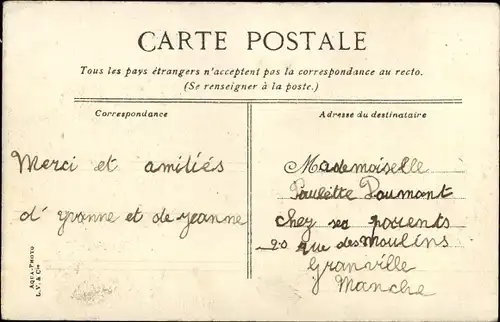 CARTE POSTALE
Tous les pays étrangers n'acceptent pas la correspondance au recto.
(Se renseigner à la poste.)
Correspondance
Adresse du destinataire
Merci et amitiés
d'yvonne et de jeanne
Mademoiselle
Paulette Daumont
chez ses parents
20 rue des Moulins
Granville
Manche
AQUA-PHOTO
L.V. & Cie